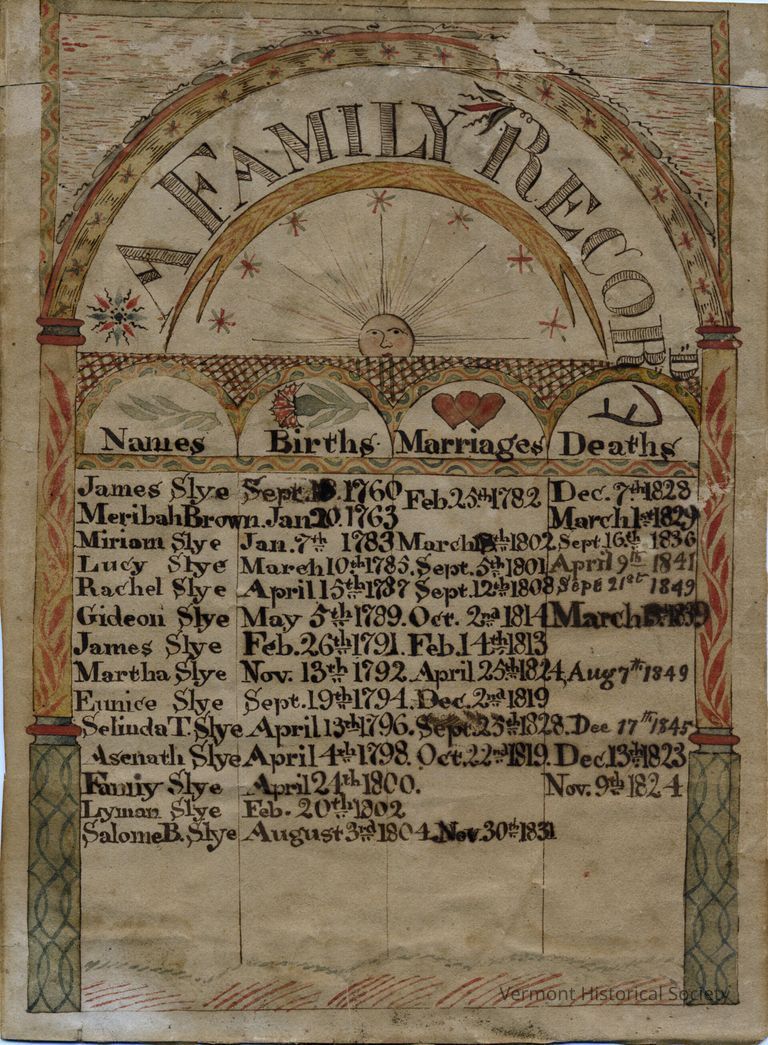 A FAMILY RECORD
Names Births Marriages Deaths
James Slye Sept. 1760 Feb. 25th 1782 Dec. 7th 1828
Meribah Brown. Jan 20. 1763 March 1st 1829
Miriam Slye Jan. 7th 1783 March 1802. Sept. 16th 1836
Lucy Slye March 10th 1785. Sept. 5th 1801 April 9th 1841
Rachel Slye April 15th 1787 Sept. 12th 1808 Sept 21st 1849
Gideon Slye May 5th 1789. Oct. 2nd 1814 March 1839
James Slye Feb. 26th 1791. Feb. 14th 1813
Martha Slye Nov. 13th 1792. April 25th 1824, Aug 7th 1849
Eunice Slye Sept. 19th 1794. Dec. 2nd 1819
Selinda T. Slye April 13th 1796. Sept. 25th 1828. Dec 17th 1845
Asenath Slye April 4th 1798. Oct. 22nd 1819. Dec. 13th 1823
Fanny Slye April 24th 1800. Nov. 9th 1824
Lyman Slye Feb. 20th 1802
Salome B. Slye August 3rd 1804. Nov. 30th 1831
Vermont Historical Society